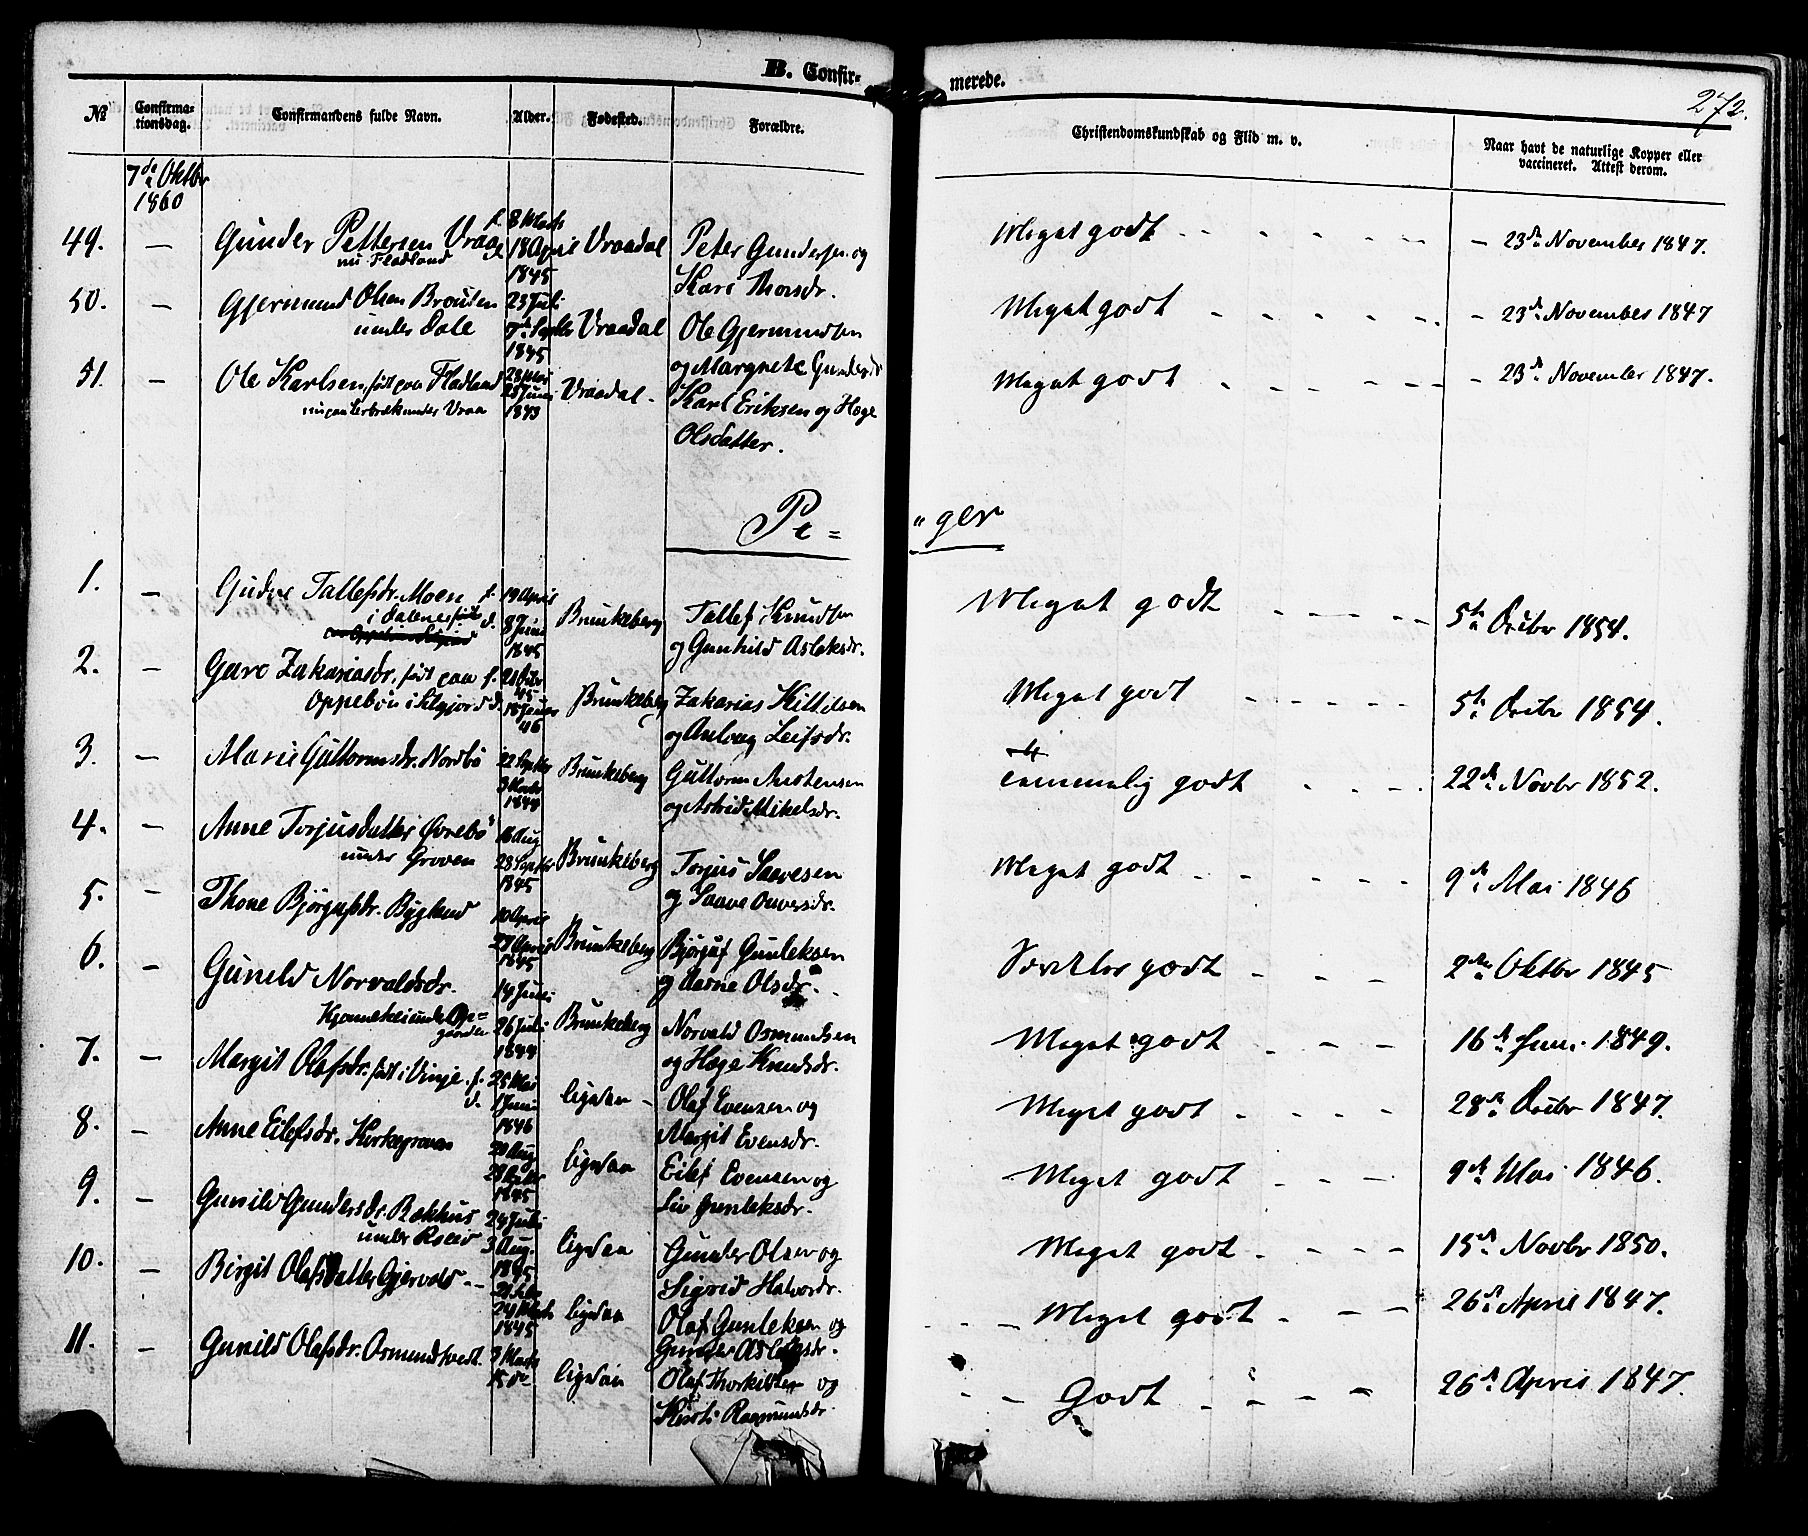 B. Confir- merede.
272.
№ Confirma-tionsdag. Confirmandens fulde Navn. Alder. Fødested. Forældre. Christendomskundskab og Flid m. v. Naar havt de naturlige Kopper eller vaccineret. Attest derom.
7de Oktbr
1860
49. — Gunder Pettersen Vraa f. 8 Marts Vraadal Peter Gundersen og Meget godt - - - - - 23de November 1847.
nu Fladland d. 18 April 1845 Kari Thorsdr.
50. — Gjermund Olsen Brouten 23 Juli Vraadal Ole Gjermundsen Meget godt - - - - - 23de November 1847
under Dale 7de Septbr 1845 og Margrete Gundersdr
51. — Ole Karlsen, født paa Fladland 23 Mai Vraadal - Karl Eriksen og Hæge Meget godt - - - - - 23de November 1847.
nu paa under Vraa 25 Juni 1843 Olsdatter.
Pi= "ger
1. — Gudne Tallefsdr. Moen f. 19 April Brunkeberg Tallef Knudsen Meget godt - - - - 5te Decbr 1854.
i Dalene født d. 8 Juni 1845 og Gunhild Aslaksdr.
2. — Guro Zakariasdr. født paa f. Brunkeberg Zakarias Kittilsen Meget godt - - - - - 5te Decbr 1854.
Oppebøn i Silgjord d. 18 46 og Anlaug Leifsdr.
3. — Marie Guttormsdr. Nordbø 22 Septbr Brunkeberg Guttorm Austensen Temmelig godt - - - 22de Novbr 1852.
3 1844 og Astrid Mikelsdr.
4. — Anne Torjusdatter Øvrebø 16 Aug Brunkeberg Torjus Saavesen Meget godt - - - - - 9de Mai 1846
under Groven 28 Septbr 1845 og Saave Onversdr.
5. — Thone Bjørgufsdr. Bygland 10 April Brunkeberg Bjørguf Gunleksen Særdeles godt - - - - 2den Oktbr 1845
27 April 1845 og Aasne Olsdr.
6. — Guneld Norvaldsdr. 14 Juli Brunkeberg Norvald Osmundsen Meget godt - - - 16de Juni 1849.
under Op=gaarden 26 Juli 1844 og Hæge Knudsdr.
7. — Margit Olafsdr. født i Vinje. f. 25 Mai ligedan - Olaf Evensen og Meget godt - - - - 28de Decbr 1847.
d. 1 Juni 1846 Margit Evensdr.
8. — Anne Eilefsdr. Kirkegroven 20 Aug ligedan Eilef Evensen og Meget godt - - - 9de Mai 1846.
1845 Liv Gunleksdr.
9. — Gunild Gundersdr. Bakhus 24 Juli ligedan Gunder Olsen og Meget godt - - - - 15de Novbr 1850.
under 3 Aug. 1845 Sigrid Halvordr.
10. — Birgit Olafsdatter Gjervold - - ligedan Olaf Gunleksen og - - - Meget godt - - - 26de April 1847.
24 Marts 1845 Aslaksdr.
11. — Gunild Olafsdr. Osmundkvedt. 3 Marts ligedan Olaf Thorkildsen og - - Godt - - - - 26de April 1847.
15 do Kirsti Raamundsdr